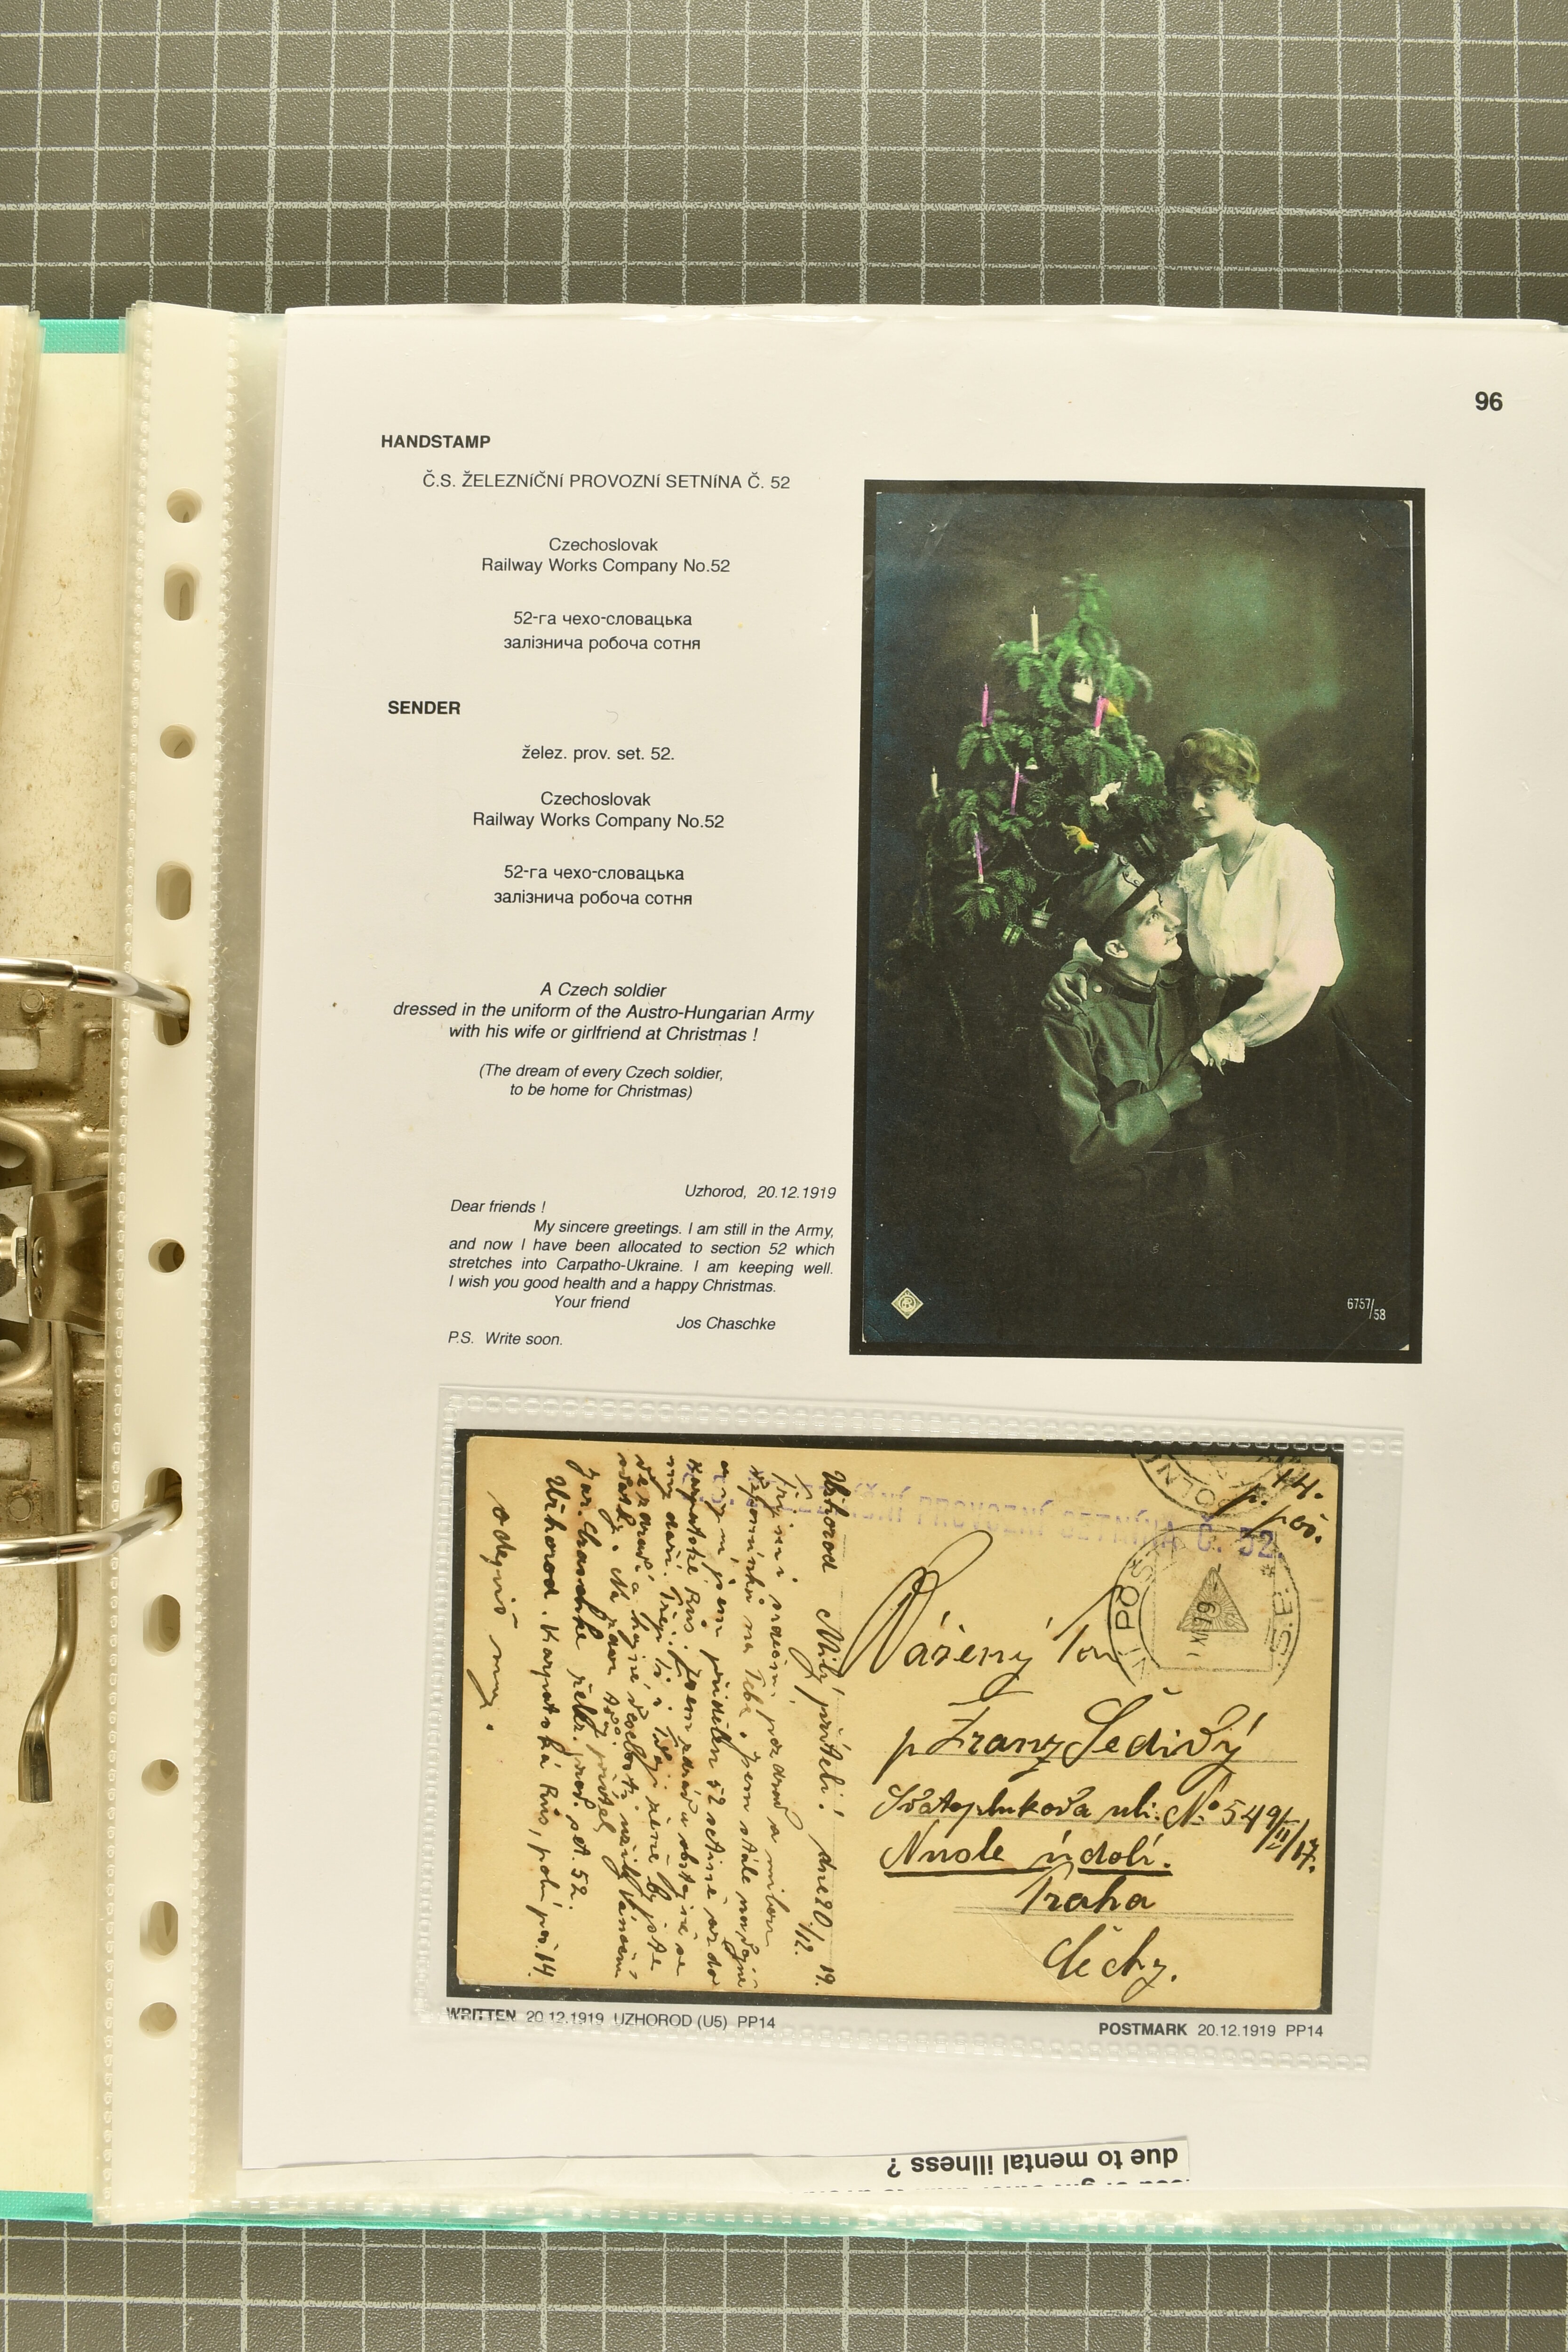 96
HANDSTAMP
Č.S. ŽELEZNÍČNÍ PROVOZNÍ SETNÍNA Č. 52
Czechoslovak
Railway Works Company No.52
52-га чехо-словацька
залізнича робоча сотня
SENDER
želez. prov. set. 52.
Czechoslovak
Railway Works Company No.52
52-га чехо-словацька
залізнича робоча сотня
A Czech soldier
dressed in the uniform of the Austro-Hungarian Army
with his wife or girlfriend at Christmas !
(The dream of every Czech soldier,
to be home for Christmas)
Uzhorod, 20.12.1919
Dear friends !
My sincere greetings. I am still in the Army,
and now I have been allocated to section 52 which
stretches into Carpatho-Ukraine. I am keeping well.
I wish you good health and a happy Christmas.
Your friend
Jos Chaschke
P.S. Write soon.
6757/58
Užhorod dne 20/12. 19.
Milý příteli!
na Tebe. Jsem stále
jsem přidělen 52 setině
Karpatské Rus. Jsem zdráv
Užhorod. Karpatská Rus, polní poš. 14.
odepiš mi.
PROVOZNÍ SETNINA Č. 52.
14.
p. poš.
POLNÍ
POŠ
XII 19
Vážený Pan
p Franz Šedivý
Svatoplukova uli. No 549/II/17.
Nusle údolí.
Praha
Čechy.
WRITTEN 20.12.1919 UZHOROD (U5) PP14
POSTMARK 20.12.1919 PP14
due to mental illness ?